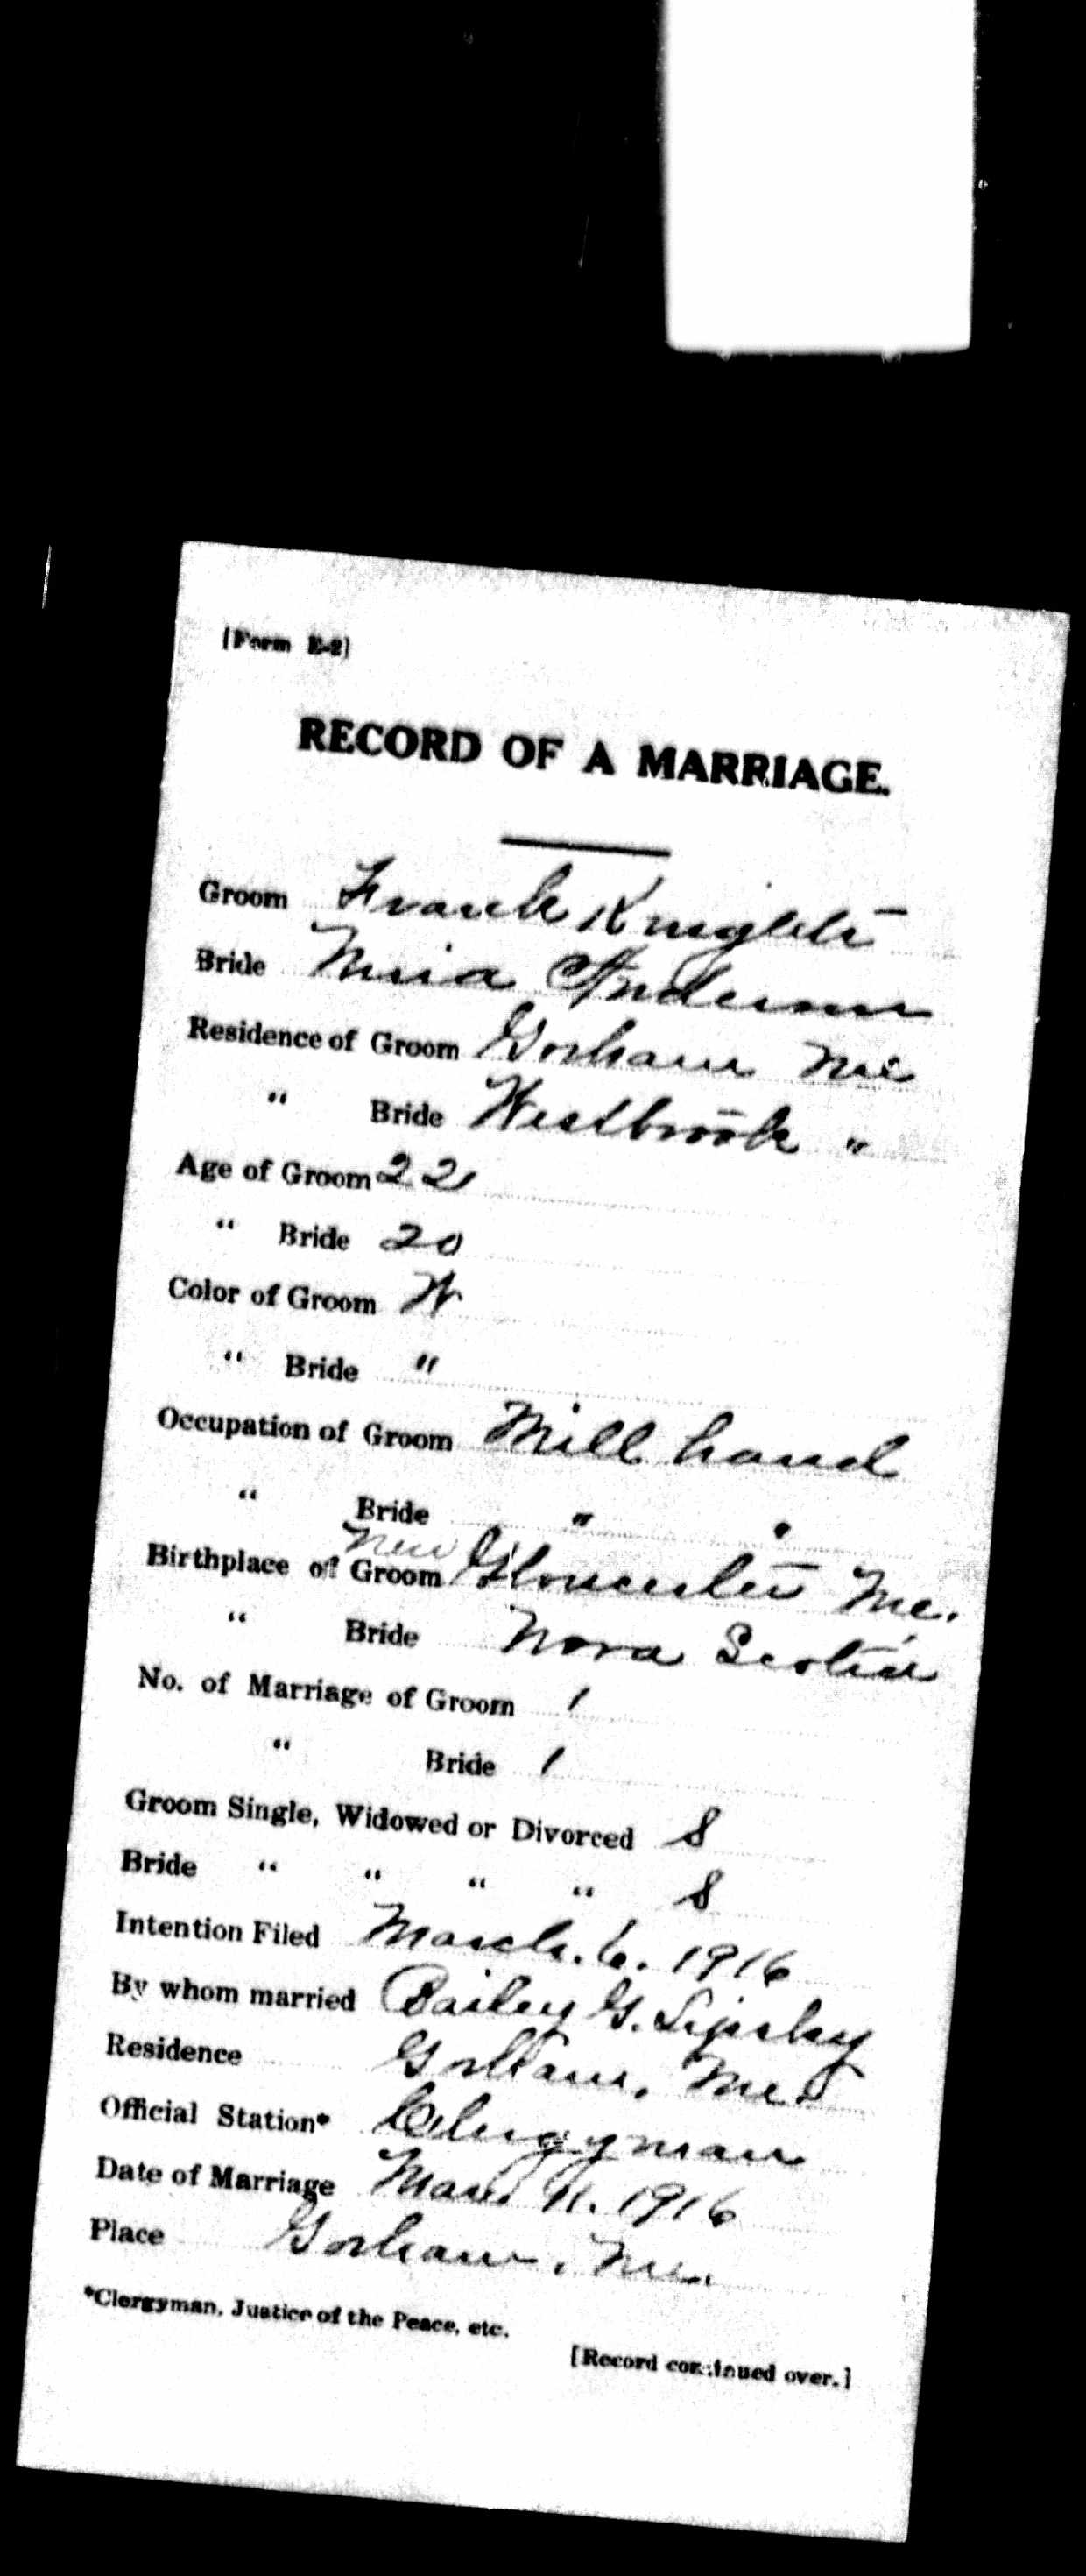 [Form E-2]
RECORD OF A MARRIAGE.
Groom Frank Knight
Bride Mina Anderson
Residence of Groom Gorham Me
" Bride Westbrook "
Age of Groom 22
" Bride 20
Color of Groom W
" Bride "
Occupation of Groom Mill hand
" Bride " "
New
Birthplace of Groom Gloucester Me.
" Bride Nova Scotia
No. of Marriage of Groom 1
" Bride 1
Groom Single, Widowed or Divorced S
Bride " " " " S
Intention Filed March. 6. 1916
By whom married Bailey G.
Residence Gorham, Me.
Official Station* Clergyman
Date of Marriage Mar. 11. 1916
Place Gorham, Me.
*Clergyman, Justice of the Peace, etc.
[Record continued over.]